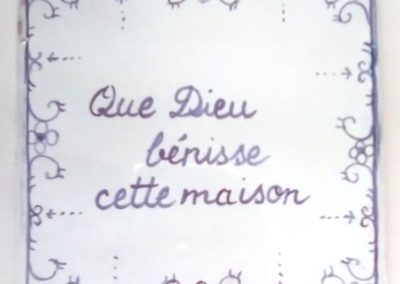 Que Dieu
bénisse
cette maison